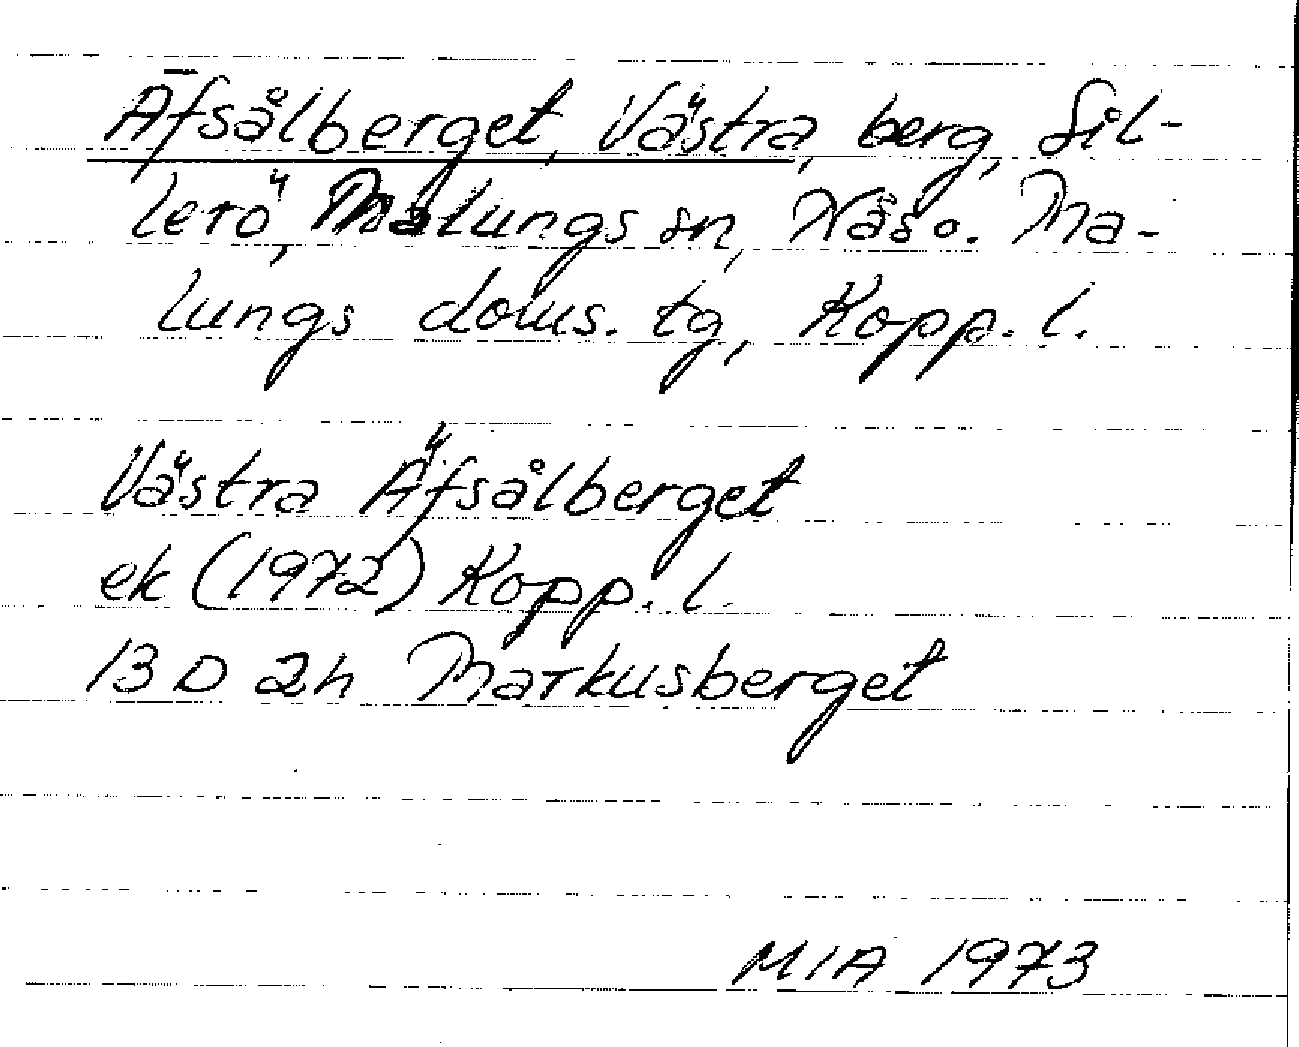 Äfsålberget, Västra, berg, Sil-
lerö, Malungs sn, Näs o. Ma-
lungs doms. tg, Kopp. l.
Västra Äfsålberget
ek (1972) Kopp. l.
13 D 2h Markusberget
MIA 1973